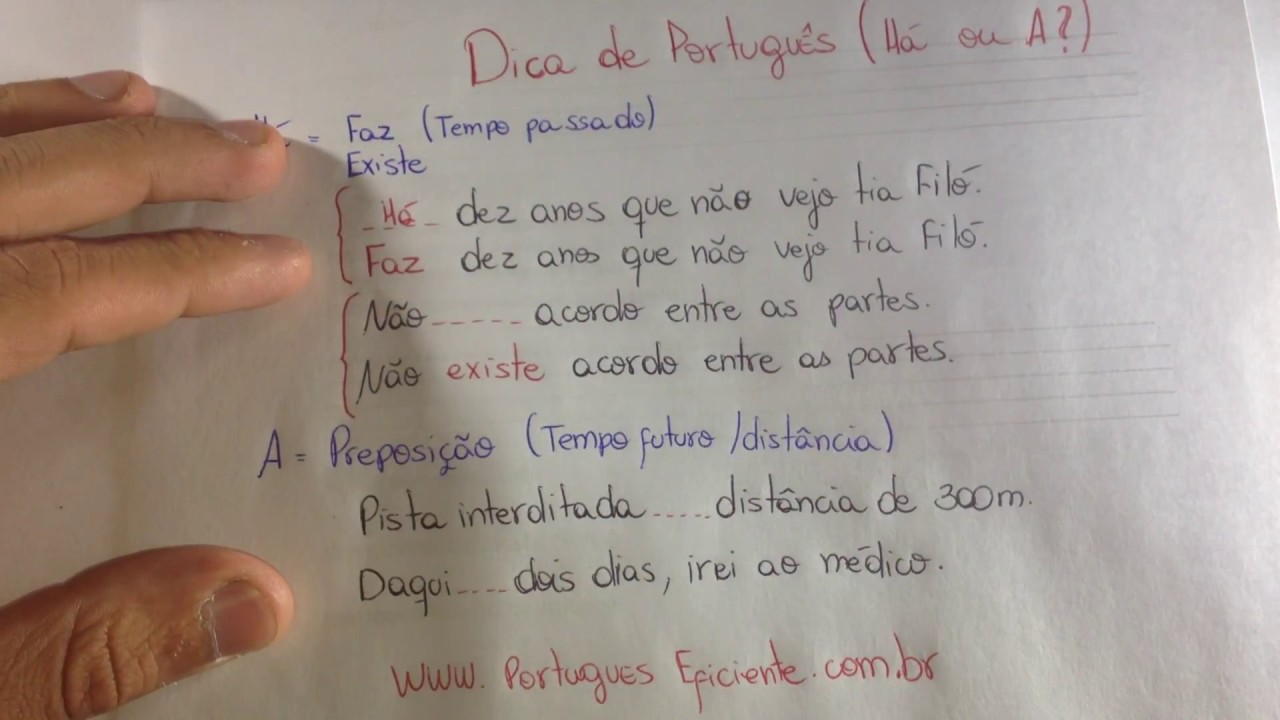 Dica de Português (Há ou A?)
= Faz (Tempo passado)
Existe
Há dez anos que não vejo tia Filó.
Faz dez anos que não vejo tia Filó.
Não ----- acordo entre as partes.
Não existe acordo entre as partes.
A = Preposição (Tempo futuro /distância)
Pista interditada ..... distância de 300m.
Daqui .... dois dias, irei ao médico.
www.PortuguesEficiente.com.br